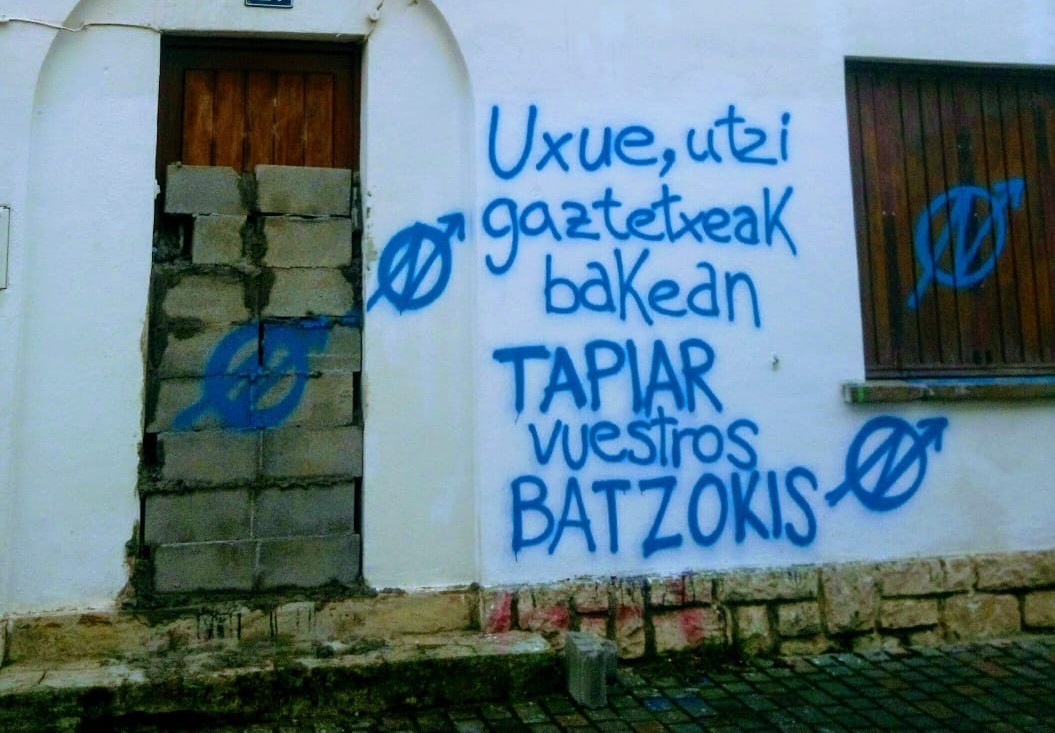 Uxue, utzi
gaztetxeak
bakean
TAPIAR
vuestros
BATZOKIS